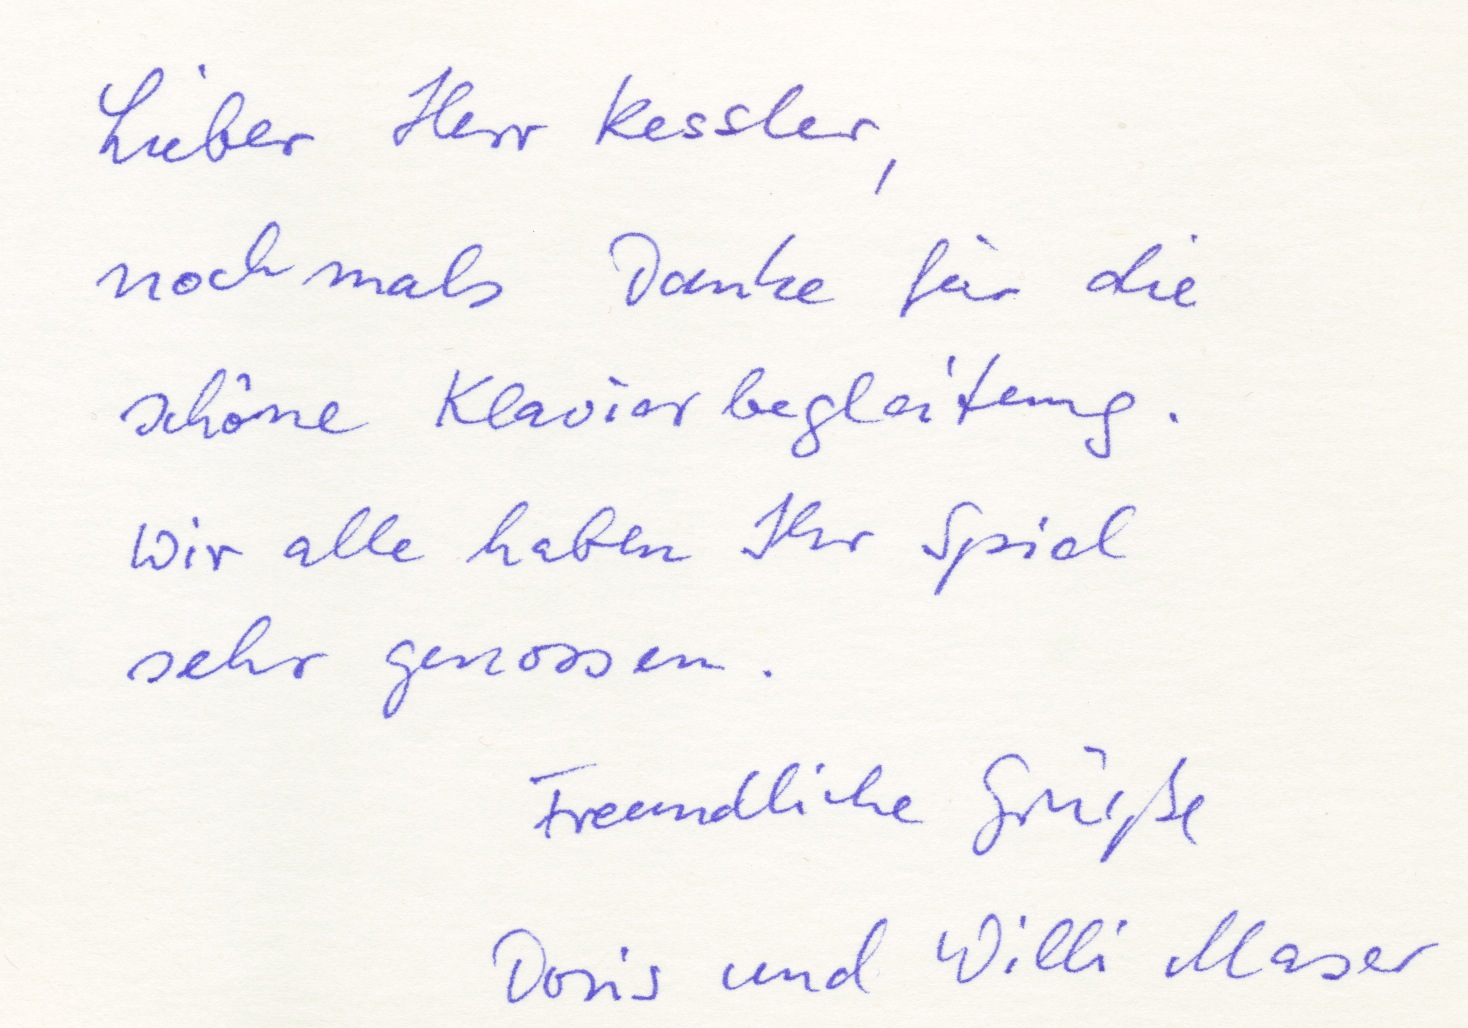 Lieber Herr Kessler,
nochmals Danke für die
schöne Klavierbegleitung.
Wir alle haben Ihr Spiel
sehr genossen.
Freundliche Grüße
Doris und Willi Maser